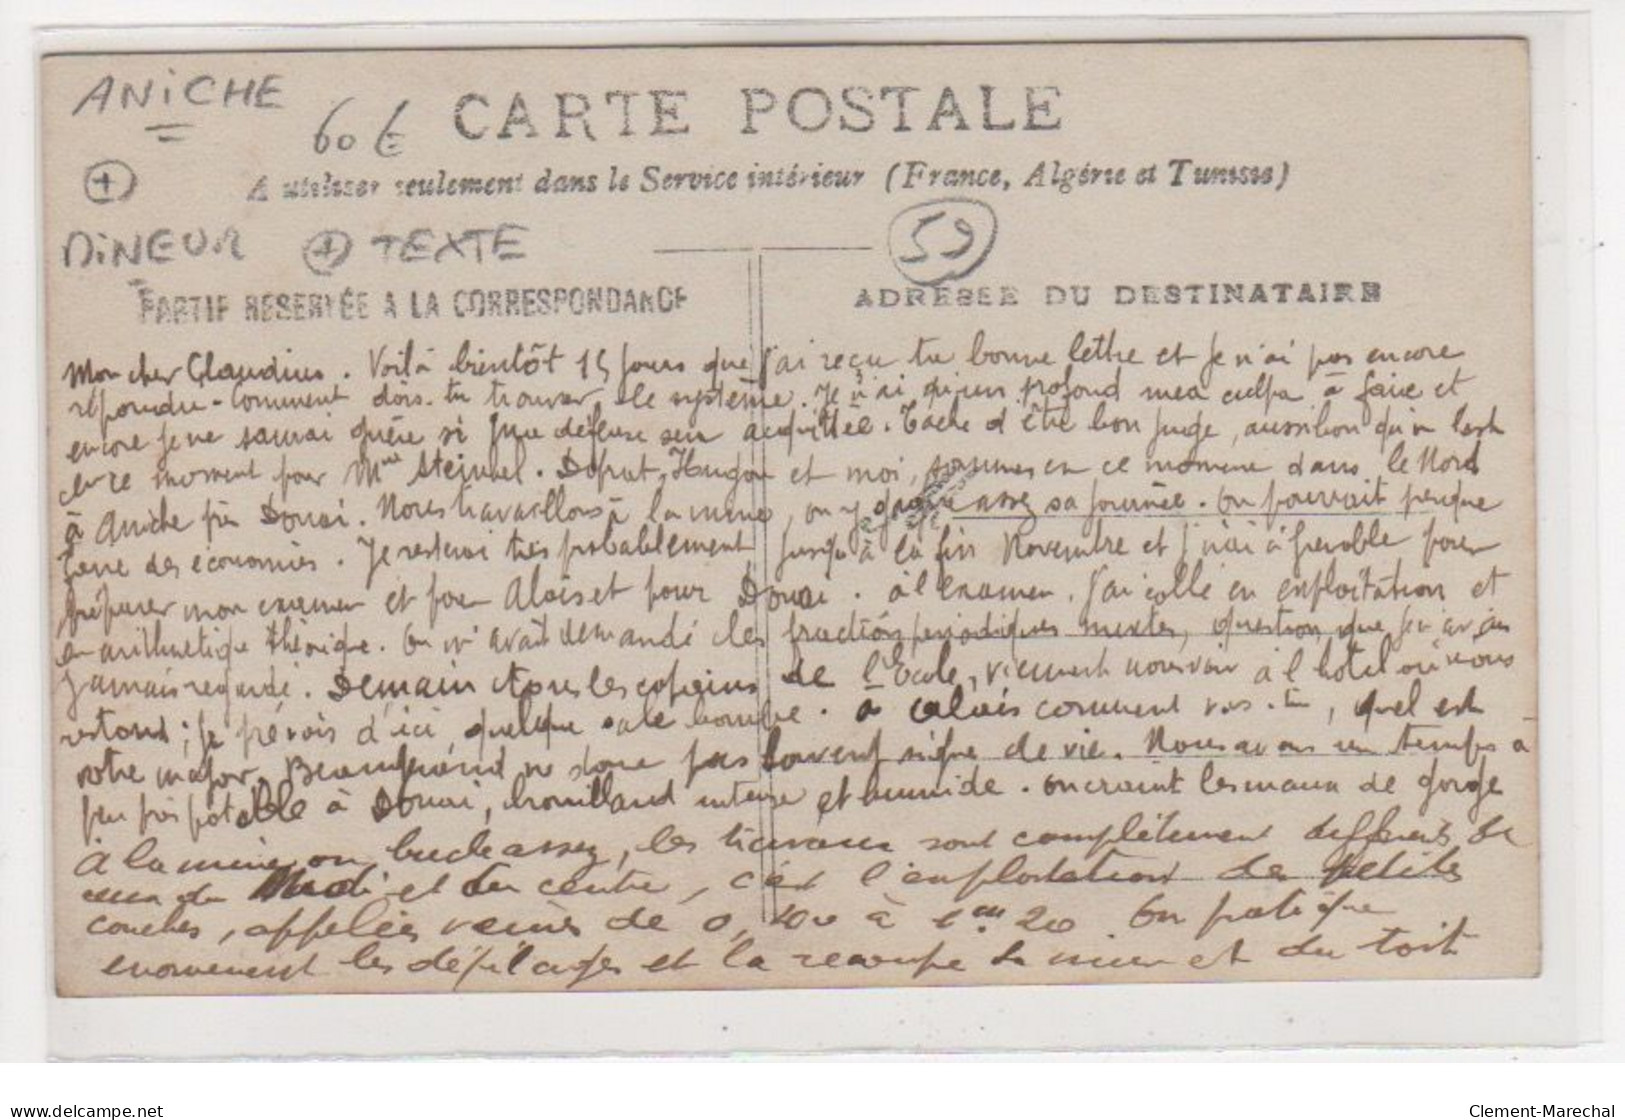 ANiCHE
60 €
CARTE POSTALE
A utiliser seulement dans le Service intérieur (France, Algérie et Tunisie)
59
MiNEUR + TEXTE
PARTIE RESERVÉE A LA CORRESPONDANCE
ADRESSE DU DESTINATAIRE
Mon cher Claudius. Voilà bientôt 15 jours que j'ai reçu ta bonne lettre et je n'ai pas encore
répondu. Comment dois-tu trouver le système. Je n'ai qu'un profond mea culpa à faire et
encore je ne saurai guère si ma défense sera acquittée. Tache d'être bon juge, aussi bon qu'on l'est
en ce moment pour Mme Steinheil. Duprat, Hugon et moi, sommes en ce moment dans le Nord
à Aniche près Douai. Nous travaillons à la mine, on y gagne assez sa journée. On pourrait presque
faire des économies. Je resterai très probablement jusqu'à la fin Novembre et j'irai à
préparer mon examen et pour Alais et pour Douai. à l'examen. J'ai collé en exploitation et
en arithmétique théorique. On m'avait demandé les fractions périodiques mixtes, question que je n'avais
jamais regardé. Demain tous les copains de l'Ecole, viennent nous voir à l'hotel où nous
restons; je prévois d'ici quelque sale bombe. à Alais comment vas-tu, quel est
votre major. Beaumprand ne donne pas souvent signe de vie. Nous avons un temps à
peu près potable à Douai, brouillard intense et humide. on craint les maux de gorge
à la mine on buche assez, les travaux sont complètement différents de
ceux du Midi et du centre, c'est l'exploitation de petites
couches, appelées veines de 0,40 à 1m.20 On pratique
énormément les dépilages et la recoupe de mur et du toit
Clement-Marechal
www.delcampe.net